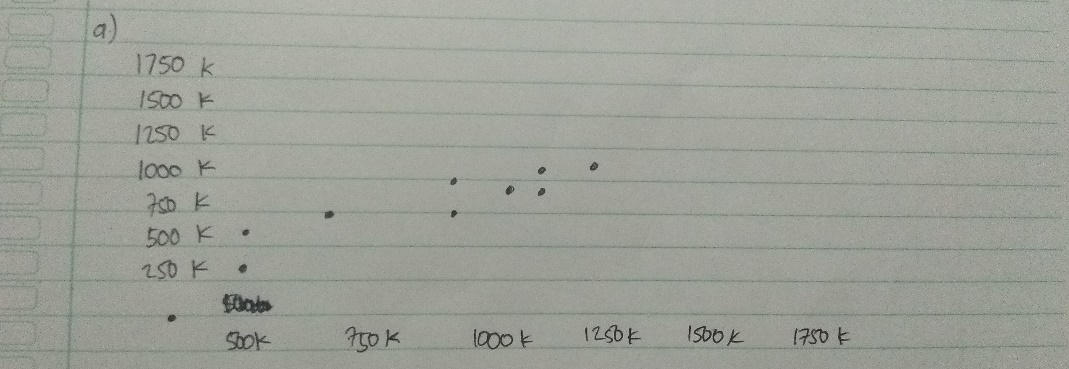 a)
1750 K
1500 K
1250 K
1000 K
750 K
500 K
250 K
500K 750 K 1000 K 1250 K 1500 K 1750 K